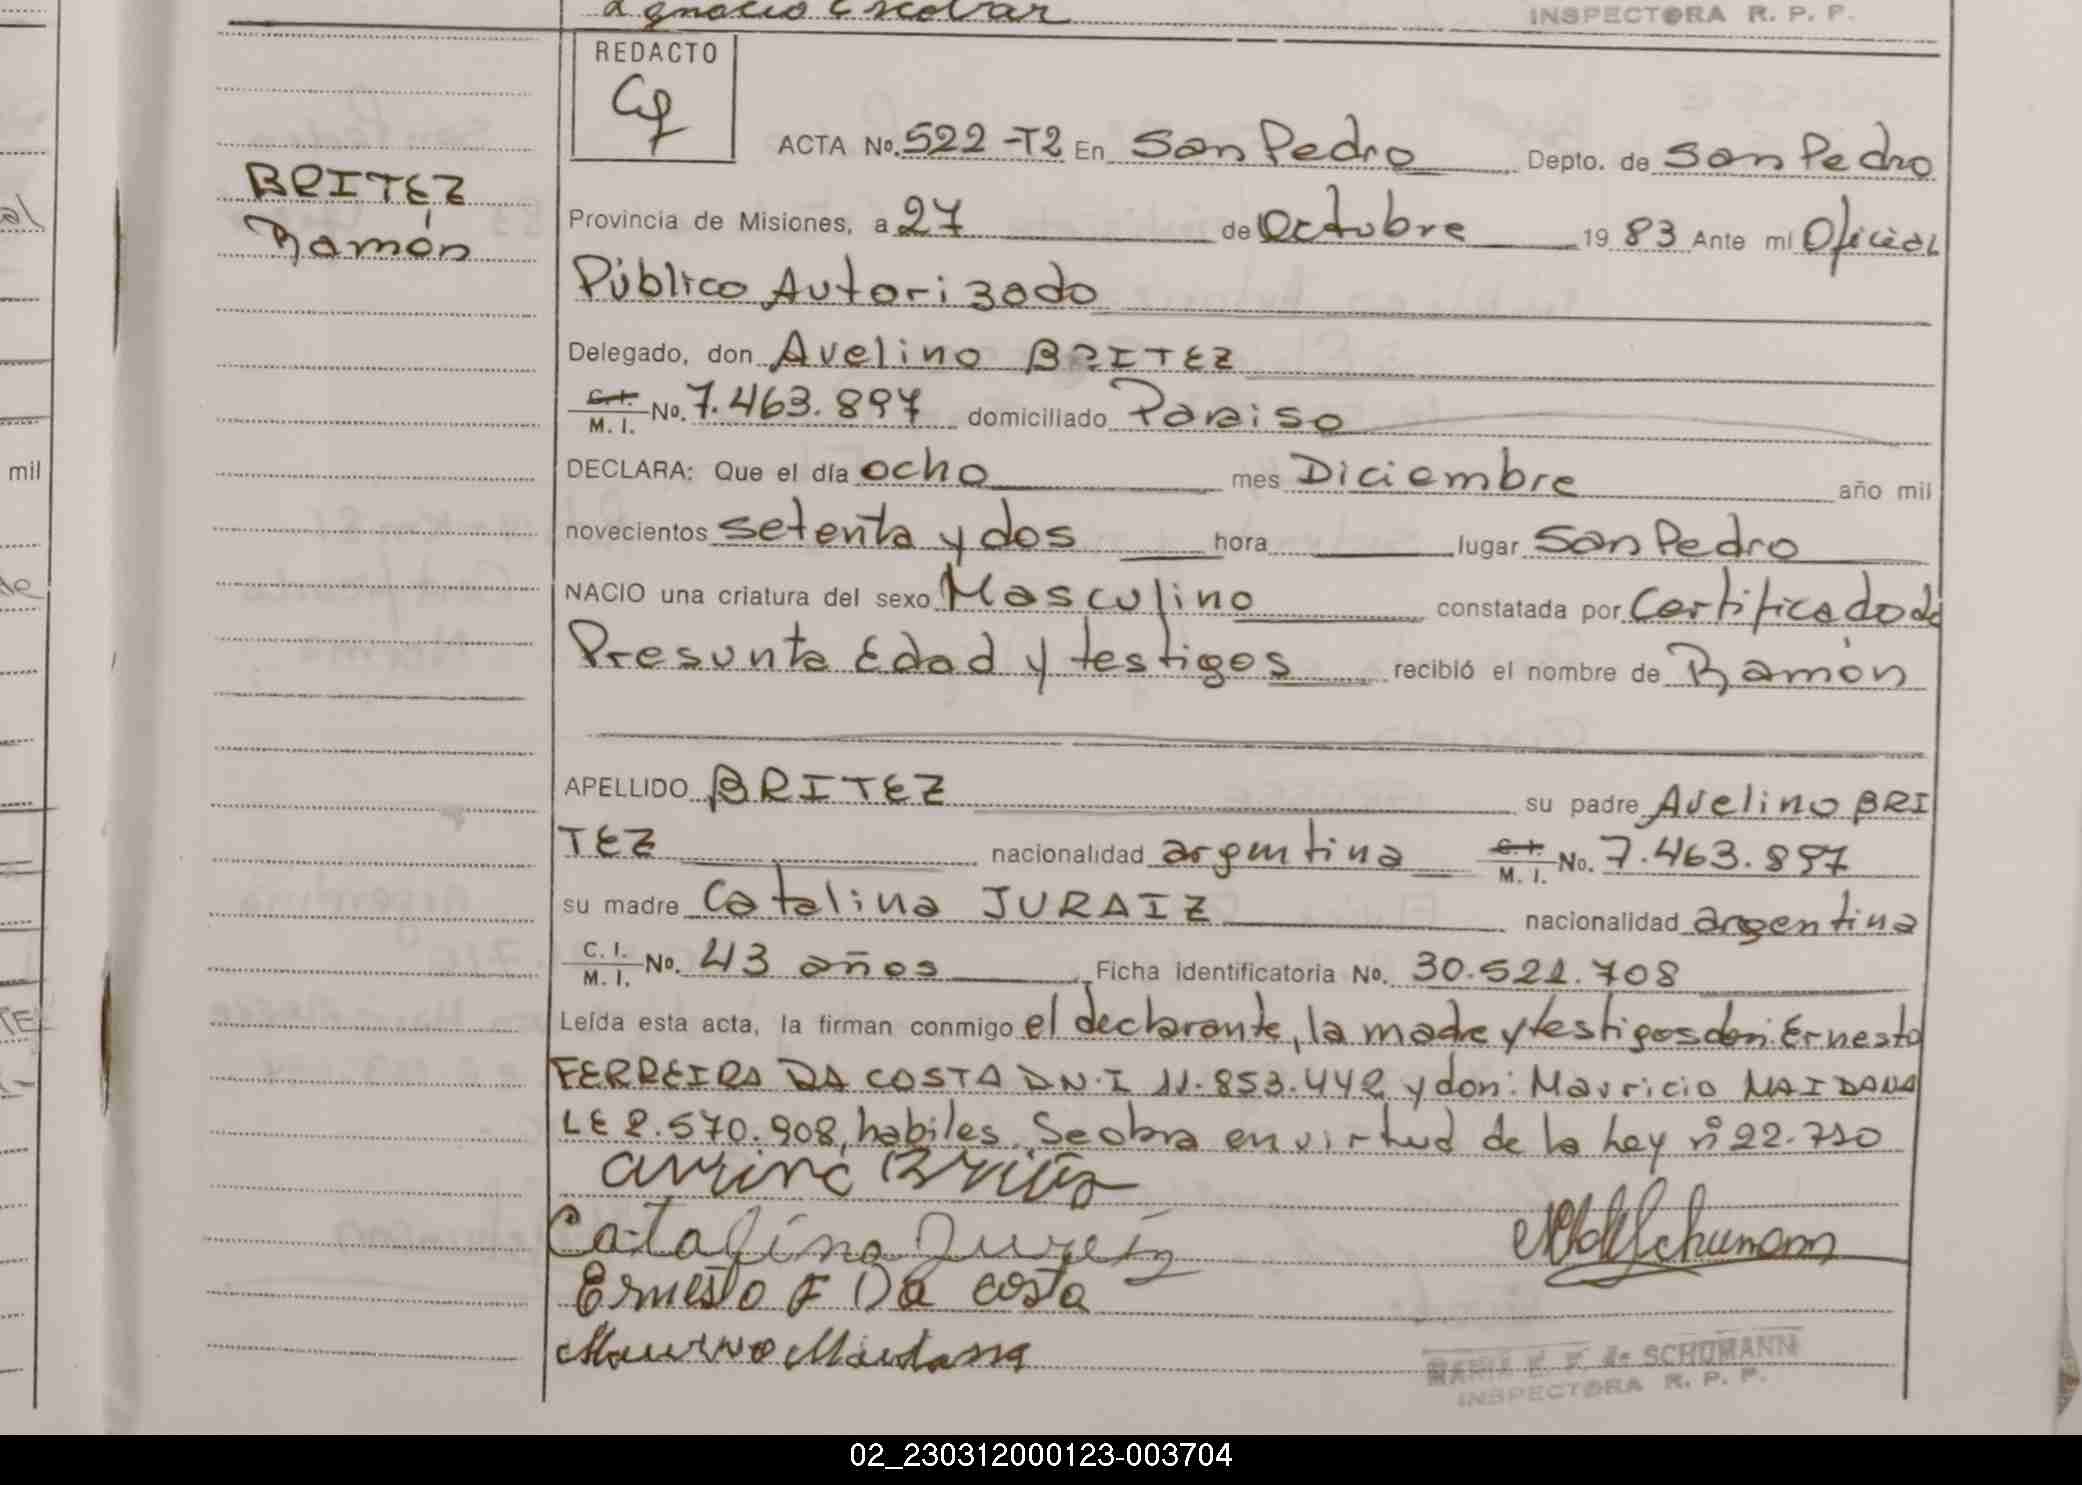 Ignacio Escobar
INSPECTORA R. P. P.
REDACTO
ACTA No. 522-T2 En San Pedro Depto. de San Pedro
BRITEZ
Ramón
Provincia de Misiones, a 27 de Octubre 19 83 Ante mí Oficial
Público Autorizado
Delegado, don Avelino BRITEZ
C. I. M. I. No. 7.463.897 domiciliado Paraiso
DECLARA: Que el día ocho mes Diciembre año mil
novecientos setenta y dos hora lugar San Pedro
NACIO una criatura del sexo Masculino constatada por Certificado de
Presunta Edad y testigos recibió el nombre de Ramón
APELLIDO BRITEZ su padre Avelino BRI
TEZ nacionalidad argentina C. I. M. I. No. 7.463.897
su madre Catalina JURAIZ nacionalidad argentina
C. I. M. I. No. 43 años Ficha identificatoria No. 30.521.708
Leída esta acta, la firman conmigo el declarante, la madre y testigos don: Ernesto
FERREIRA DA COSTA D.N.I 11.853.442 y don: Mauricio MAIDANA
LE 2.570.908, habiles. Se obra en virtud de la Ley nº 22.710
Catalina Jureiz
Ernesto F Da costa
Maidana
MARIA E. F. de SCHUMANN
INSPECTORA R. P. P.
mil
02_230312000123-003704